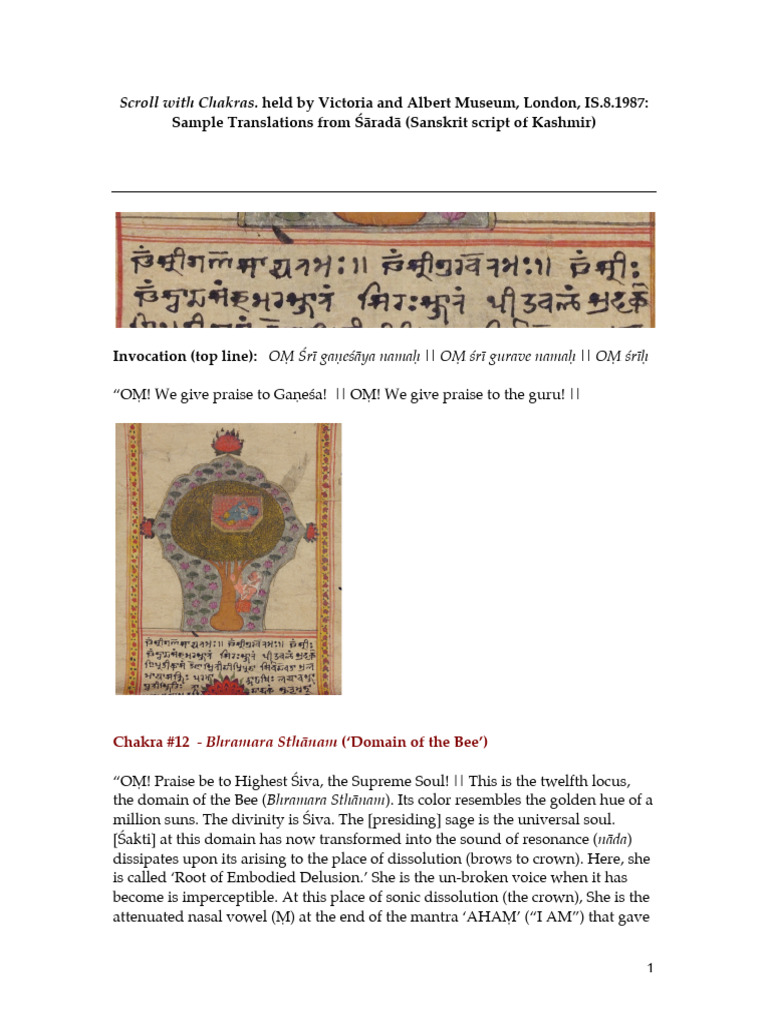 Scroll with Chakras. held by Victoria and Albert Museum, London, IS.8.1987:
Sample Translations from Śāradā (Sanskrit script of Kashmir)
Invocation (top line): OṂ Śrī gaṇeśāya namaḥ || OṂ śrī gurave namaḥ || OṂ śrīḥ
“OṂ! We give praise to Gaṇeśa! || OṂ! We give praise to the guru! ||
Chakra #12 - Bhramara Sthānam (‘Domain of the Bee’)
“OṂ! Praise be to Highest Śiva, the Supreme Soul! || This is the twelfth locus,
the domain of the Bee (Bhramara Sthānam). Its color resembles the golden hue of a
million suns. The divinity is Śiva. The [presiding] sage is the universal soul.
[Śakti] at this domain has now transformed into the sound of resonance (nāda)
dissipates upon its arising to the place of dissolution (brows to crown). Here, she
is called ‘Root of Embodied Delusion.’ She is the un-broken voice when it has
become is imperceptible. At this place of sonic dissolution (the crown), She is the
attenuated nasal vowel (Ṃ) at the end of the mantra ‘AHAṂ’ (“I AM”) that gave
1